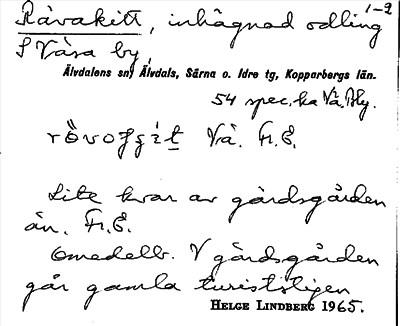 Råvakitt, inhägnad odling 1-2
S Våsa by,
Älvdalens sn, Älvdals, Särna o. Idre tg, Kopparbergs län.
54 spec. ka Vå. By.
Vå. Fr. E.
Lite kvar av gärdsgården
än. Fr. E.
Omedelb. V gärdsgården
går gamla turiststigen
HELGE LINDBERG 1965.